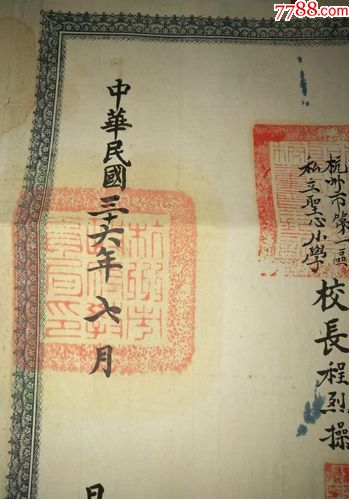 7788.com
杭州市第一區
私立聖心小學
校長程烈操
中華民國三十六年七月
日